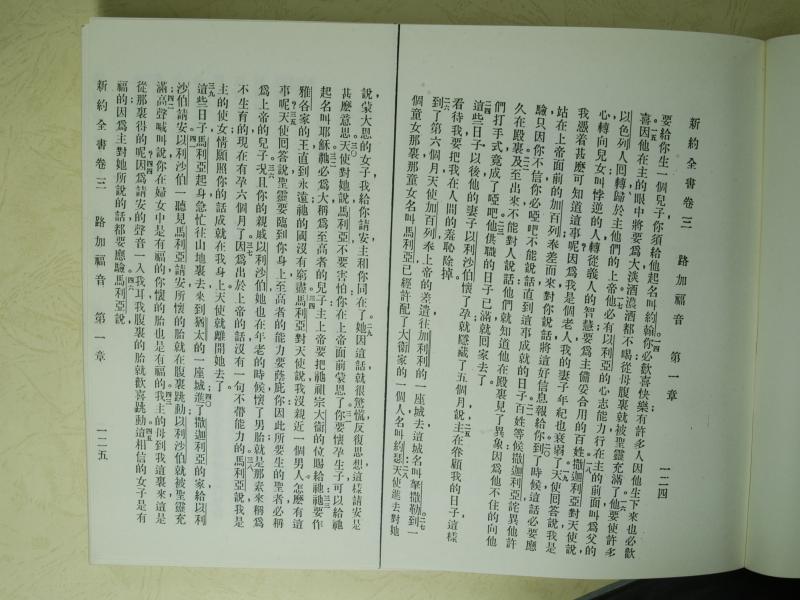 新約全書卷三 路加福音 第一章 一二四
要給你生一個兒子你須給他起名叫約翰你必歡喜快樂有許多人因他生下來也必歡
喜因他在主的眼中將要爲大淡酒濃酒都不喝從母腹裏就被聖靈充滿了他要使許多
以色列人回轉歸於主他們的上帝他必有以利亞的心志能力行在主的前面叫爲父的
心轉向兒女叫悖逆的人轉從義人的智慧要爲主備妥合用的百姓撒迦利亞對天使說
我憑着甚麽可知道這事呢因爲我是個老人我的妻子年紀也衰弱了天使回答說我是
站在上帝面前的加百列奉差而來對你說話將這好信息報給你到了時候這話必要應
驗只因你不信你必啞吧不能說話直到這事成就的日子百姓等候撒迦利亞詫異他許
久在殿裏及至出來不能對人說話他們就知道他在殿裏見了異象因爲他不住的向他
們打手式竟成了啞吧他供職的日子已滿就回家去了
這些日子以後他的妻子以利沙伯懷了孕就隱藏了五個月說主在眷顧我的日子這樣
看待我要把我在人間的羞恥除掉
到了第六個月天使加百列奉上帝的差遣往加利利的一座城去這城名叫拿撒勒到一
個童女那裏那童女名叫馬利亞已經許配了大衞家的一個人名叫約瑟天使進去對她
說蒙大恩的女子我給你請安主和你同在了她因這話就很驚慌反復思想這樣請安是
甚麽意思天使對她說馬利亞不要害怕你在上帝面前蒙恩了你要懷孕生子可以給祂
起名叫耶穌祂必爲大稱爲至高者的兒子主上帝要把祂祖宗大衞的位賜給祂祂要作
雅各家的王直到永遠祂的國沒有窮盡馬利亞對天使說我沒親近一個男人怎麽有這
事呢天使回答說聖靈要臨到你身上至高者的能力要蔭庇你因此所要生的聖者必稱
爲上帝的兒子況且你的親戚以利沙伯她也在年老的時候懷了男胎就是那素來稱爲
不生育的現在有孕六個月了因爲出於上帝的話沒有一句不帶能力的馬利亞說我是
主的使女情願照你的話成就在我身上天使就離開她去了
這些日子馬利亞起身急忙往山地裏去來到猶太的一座城進了撒迦利亞的家給以利
沙伯請安以利沙伯一聽見馬利亞請安所懷的胎就在腹裏跳動以利沙伯就被聖靈充
滿高聲喊叫說你在婦女中是有福的你懷的胎也是有福的我主的母到我這裏來這是
從那裏得的呢因爲請安的聲音一入我耳我腹裏的胎就歡喜跳動這相信的女子是有
福的因爲主對她所說的話都要應驗馬利亞說
新約全書卷三 路加福音 第一章 一二五